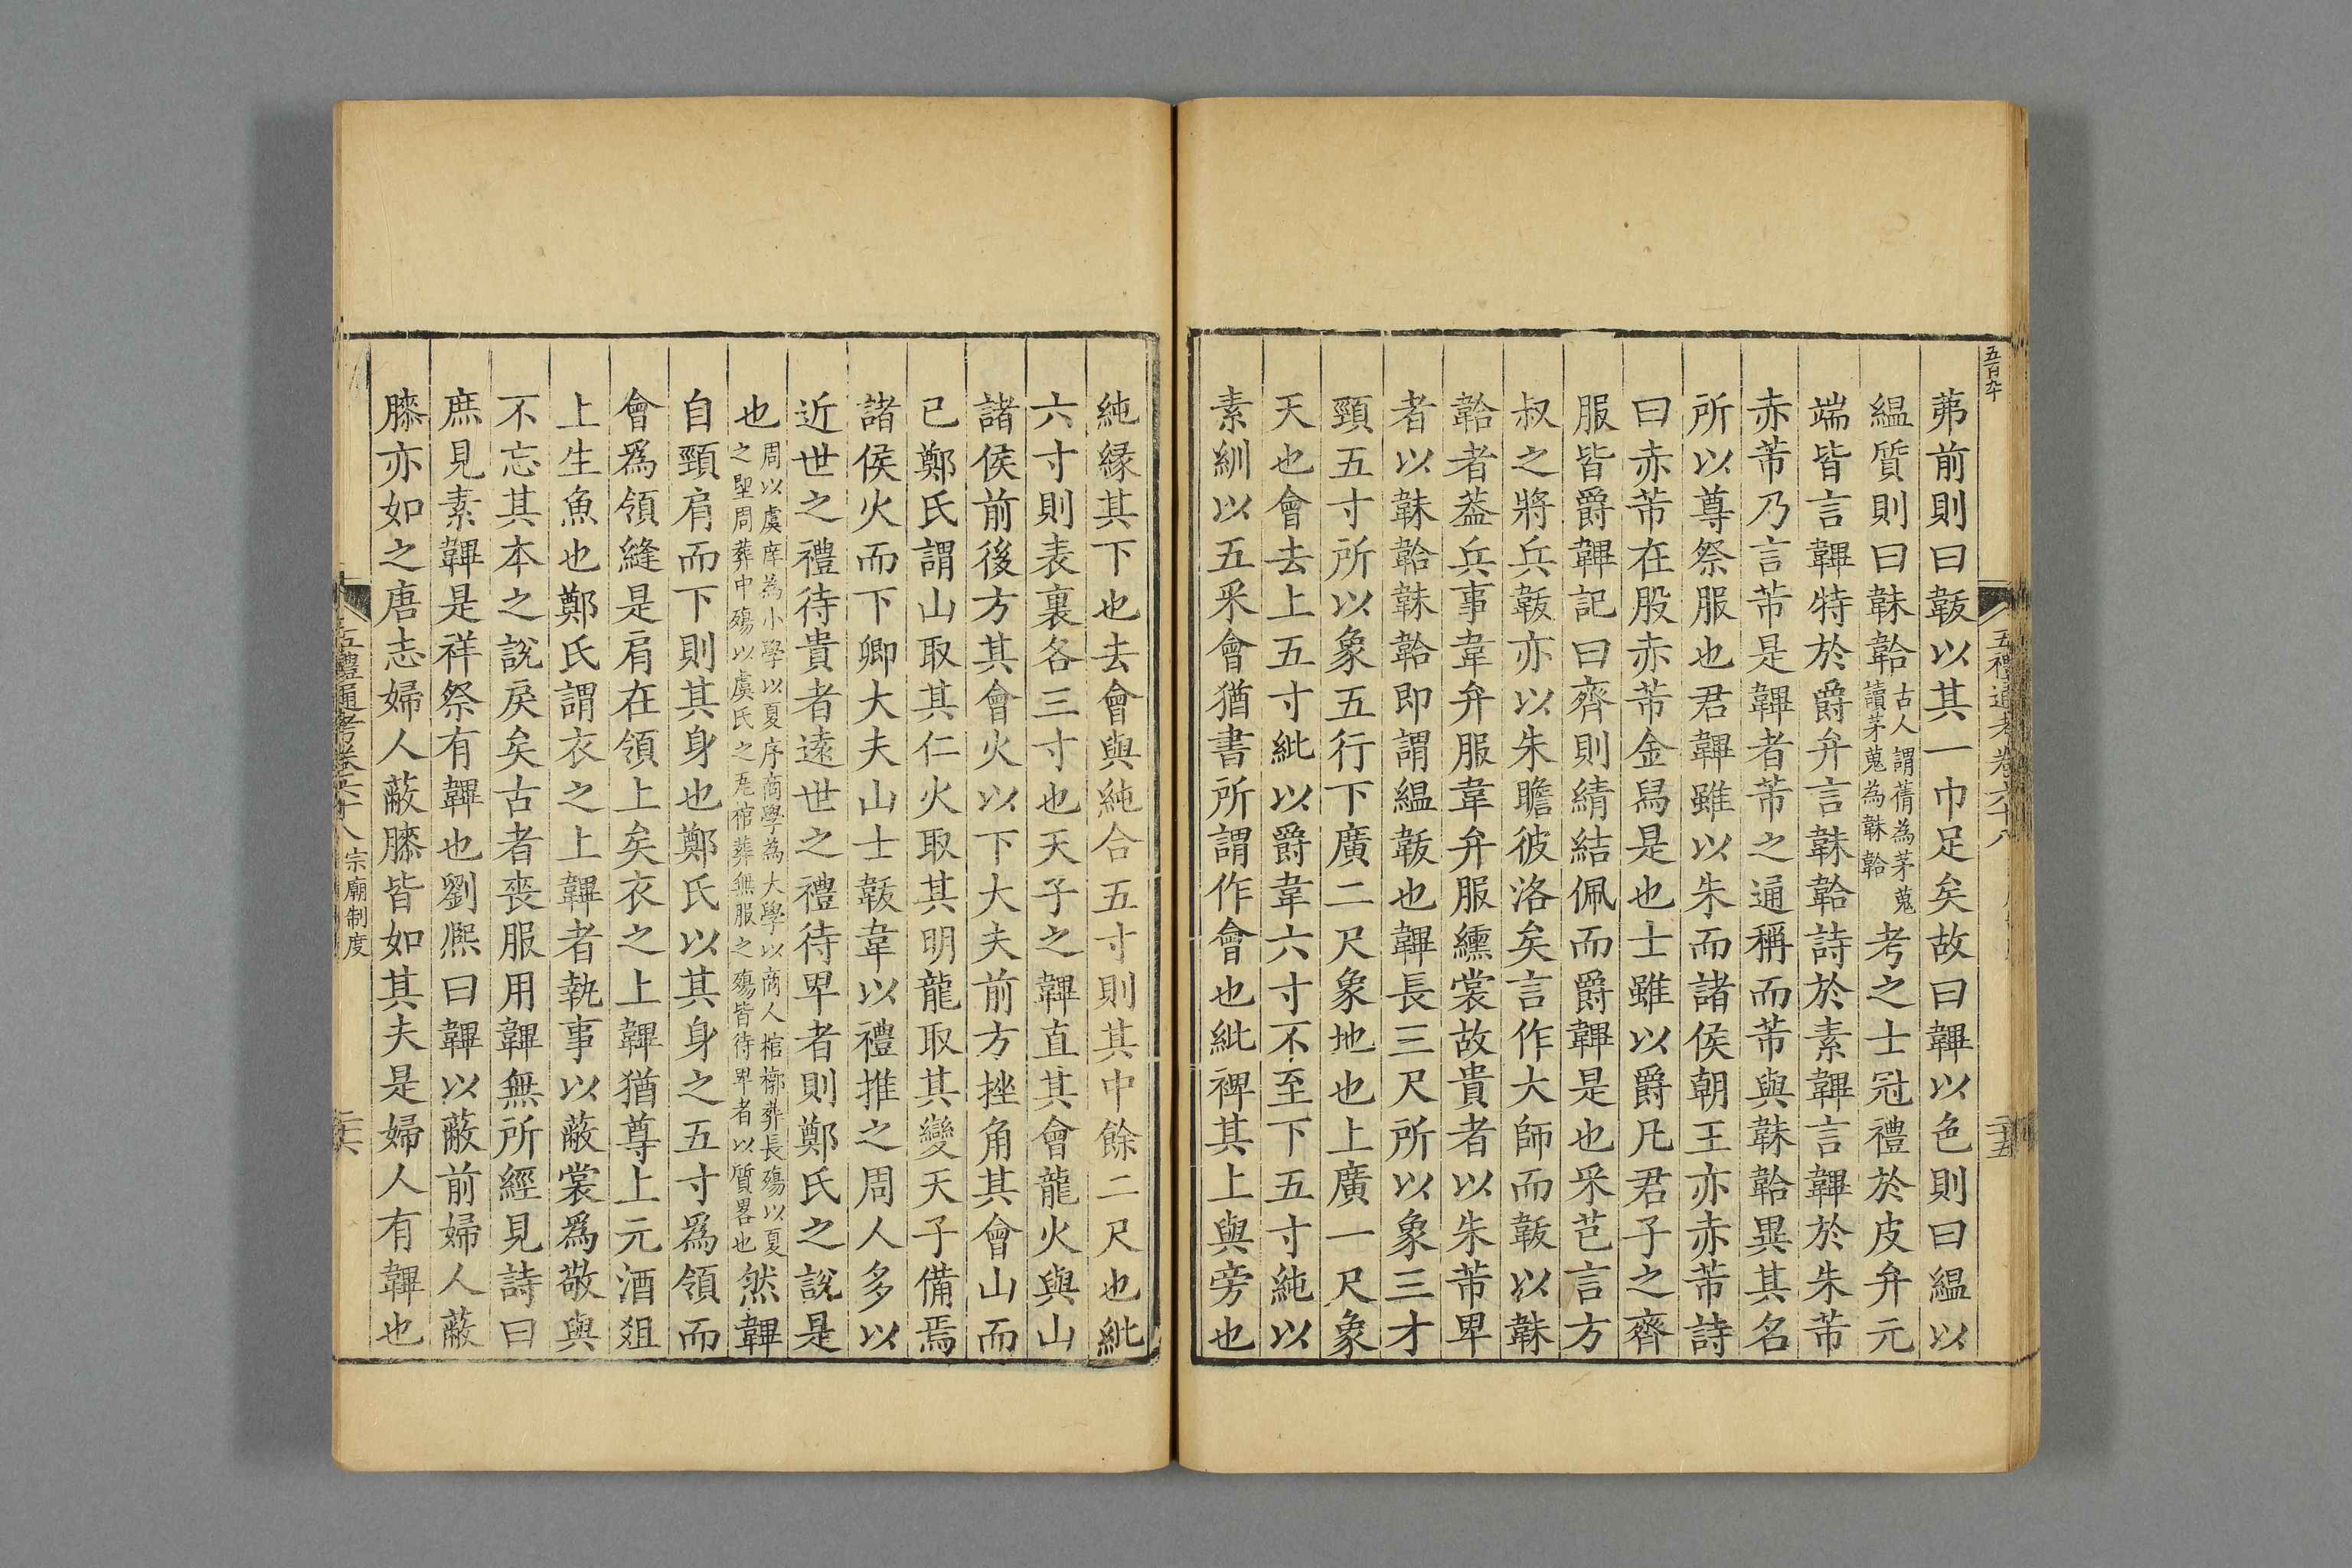 五百九十
五禮通考卷六十八
二十五
茀前則曰韍以其一巾足矣故曰韠以色則曰縕以
縕質則曰韎韐古人謂蒨為茅蒐讀茅蒐為韎韐考之士冠禮於皮弁元
端皆言韠特於爵弁言韎韐詩於素韠言韠於朱芾
赤芾乃言芾是韠者芾之通稱而芾與韎韐異其名
所以尊祭服也君韠雖以朱而諸侯朝王亦赤芾詩
曰赤芾在股赤芾金舄是也士雖以爵凡君子之齊
服皆爵韠記曰齊則綪結佩而爵韠是也采芑言方
叔之將兵韍亦以朱瞻彼洛矣言作大師而韍以韎
韐者葢兵事韋弁服韋弁服纁裳故貴者以朱芾卑
者以韎韐韎韐即謂縕韍也韠長三尺所以象三才
頸五寸所以象五行下廣二尺象地也上廣一尺象
天也會去上五寸紕以爵韋六寸不至下五寸純以
素紃以五采會猶書所謂作會也紕裨其上與旁也
純緣其下也去會與純合五寸則其中餘二尺也紕
六寸則表裏各三寸也天子之韠直其會龍火與山
諸侯前後方其會火以下大夫前方挫角其會山而
已鄭氏謂山取其仁火取其明龍取其變天子備焉
諸侯火而下卿大夫山士韍韋以禮推之周人多以
近世之禮待貴者遠世之禮待卑者則鄭氏之說是
也周以虞庠為小學以夏序商學為大學以商人棺槨葬長殤以夏之堲周葬中殤以虞氏之瓦棺葬無服之殤皆待卑者以質畧也然韠
自頸肩而下則其身也鄭氏以其身之五寸爲領而
會爲領縫是肩在領上矣衣之上韠猶尊上元酒俎
上生魚也鄭氏謂衣之上韠者執事以蔽裳爲敬與
不忘其本之說戾矣古者喪服用韠無所經見詩曰
庶見素韠是祥祭有韠也劉熈曰韠以蔽前婦人蔽
膝亦如之唐志婦人蔽膝皆如其夫是婦人有韠也
五禮通考卷六十八 宗廟制度
二十六